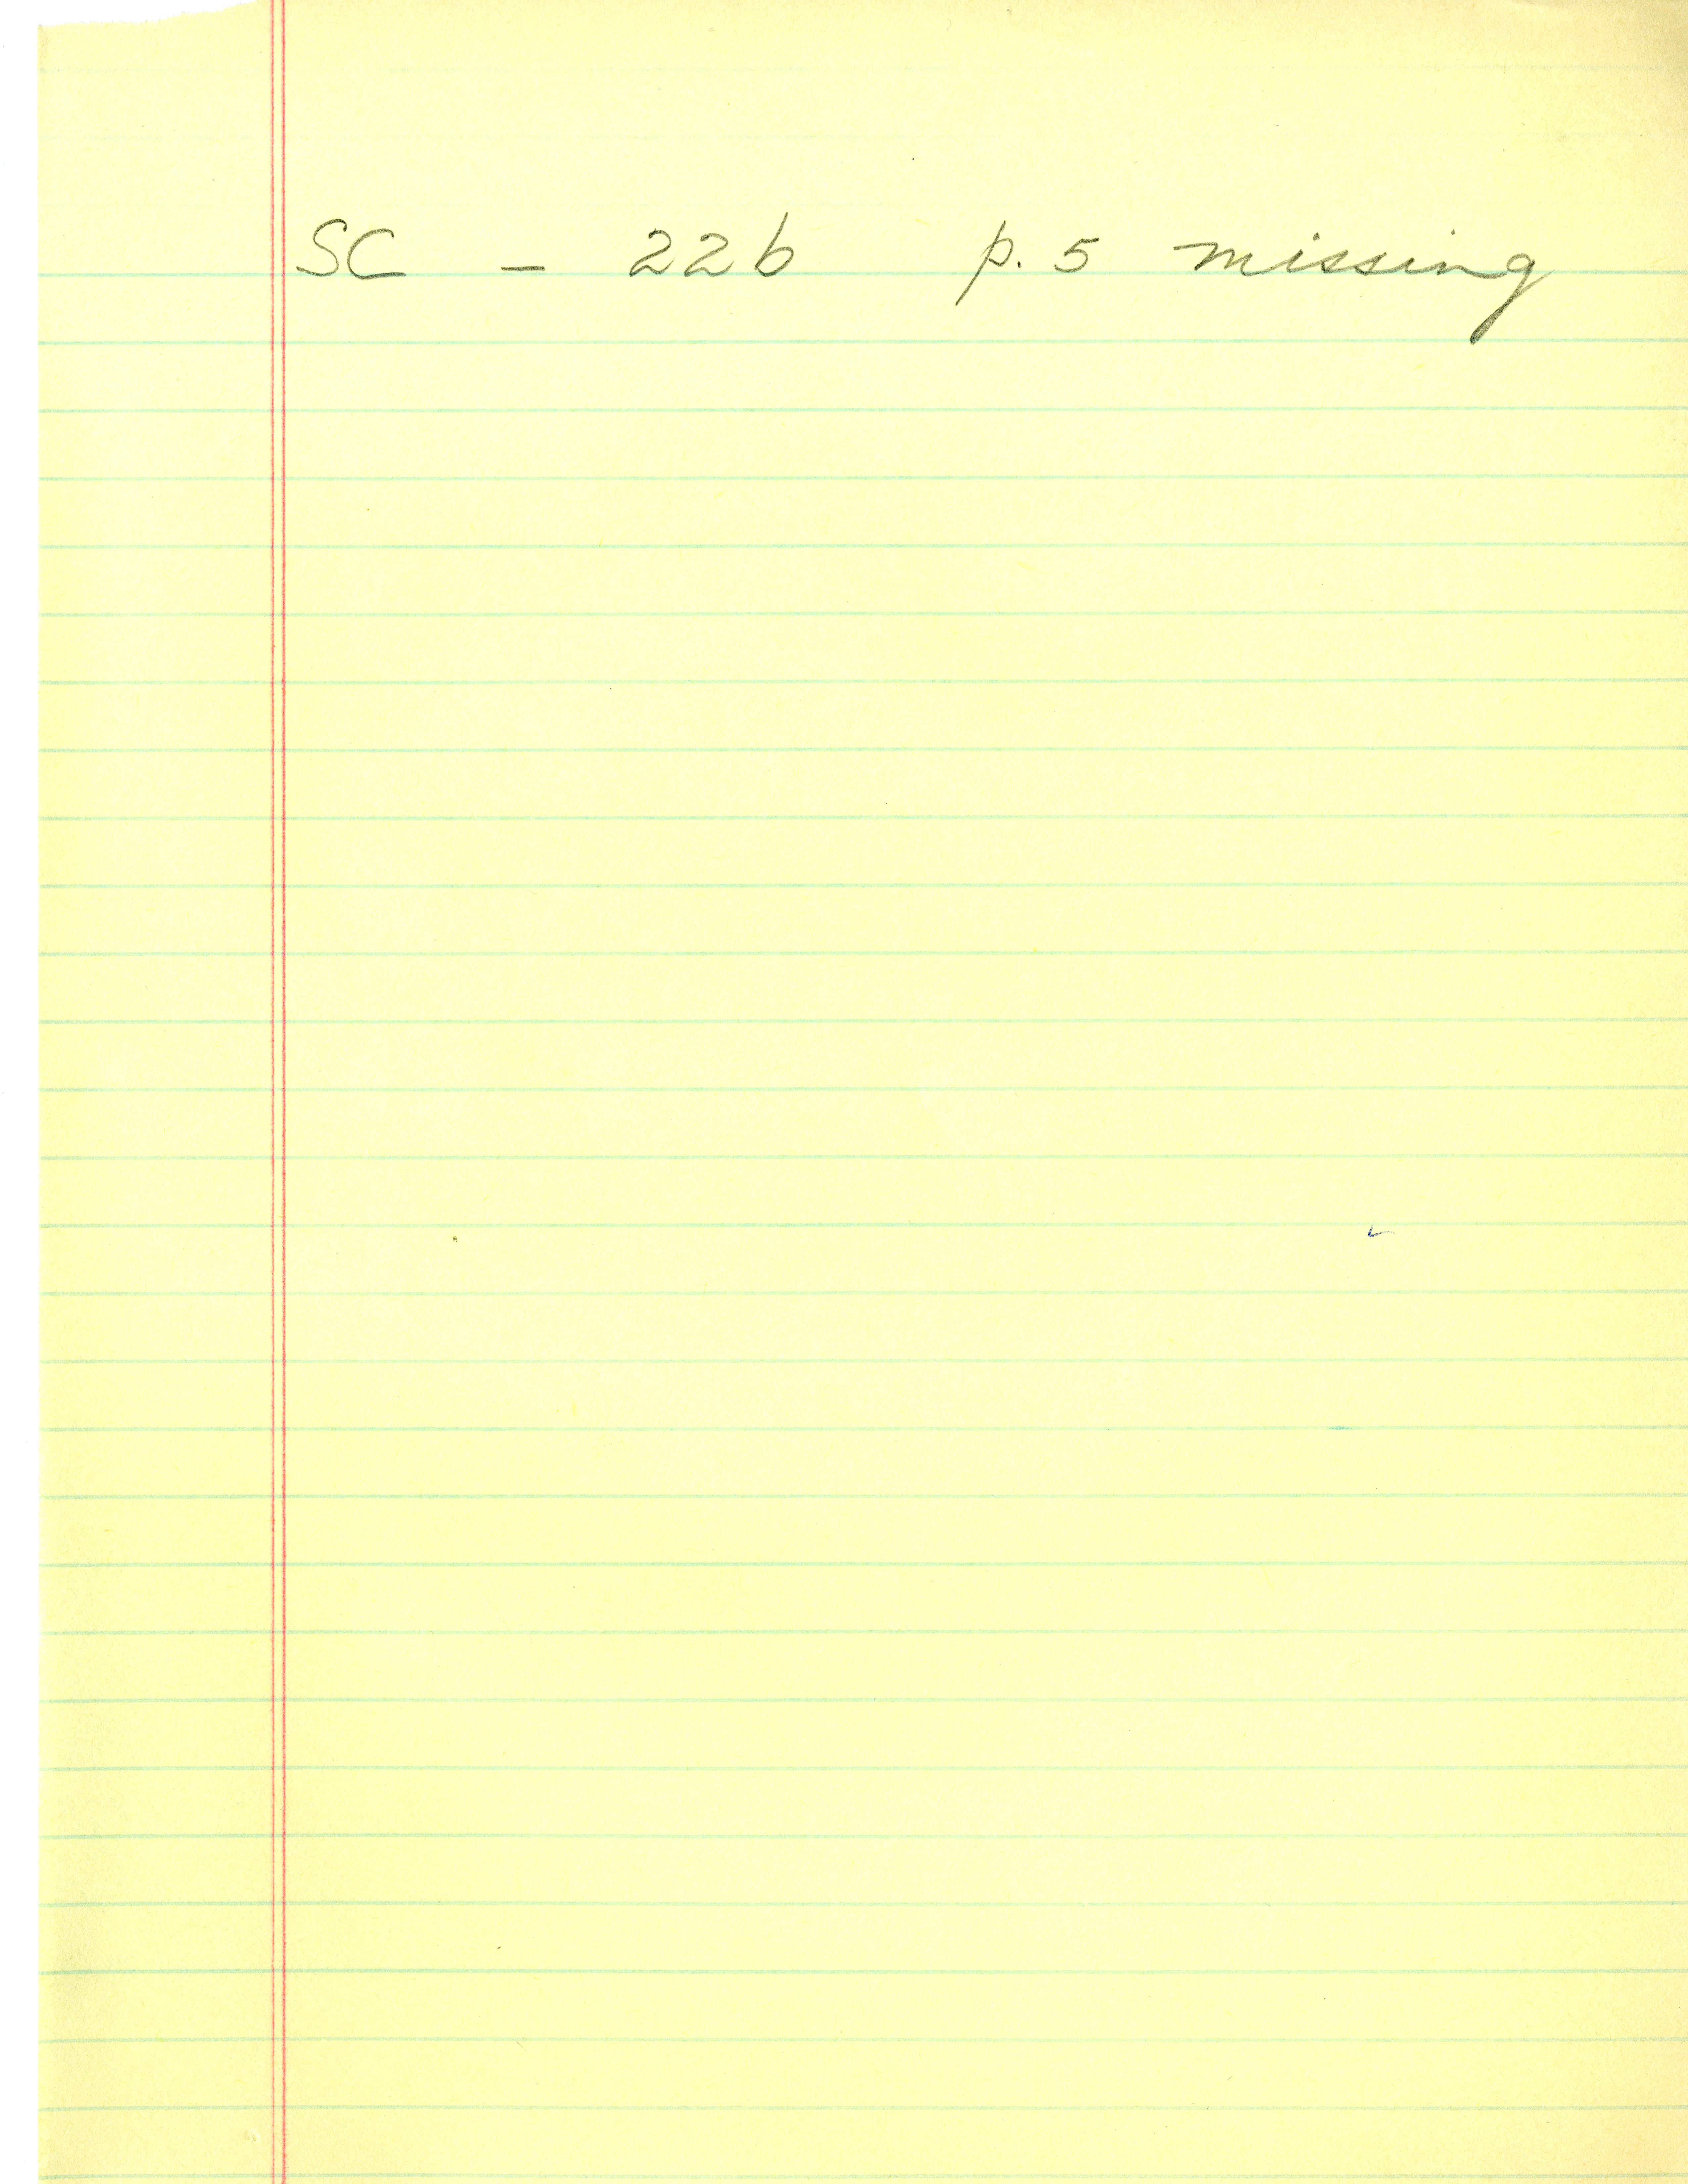 SC - 22b p. 5 missing